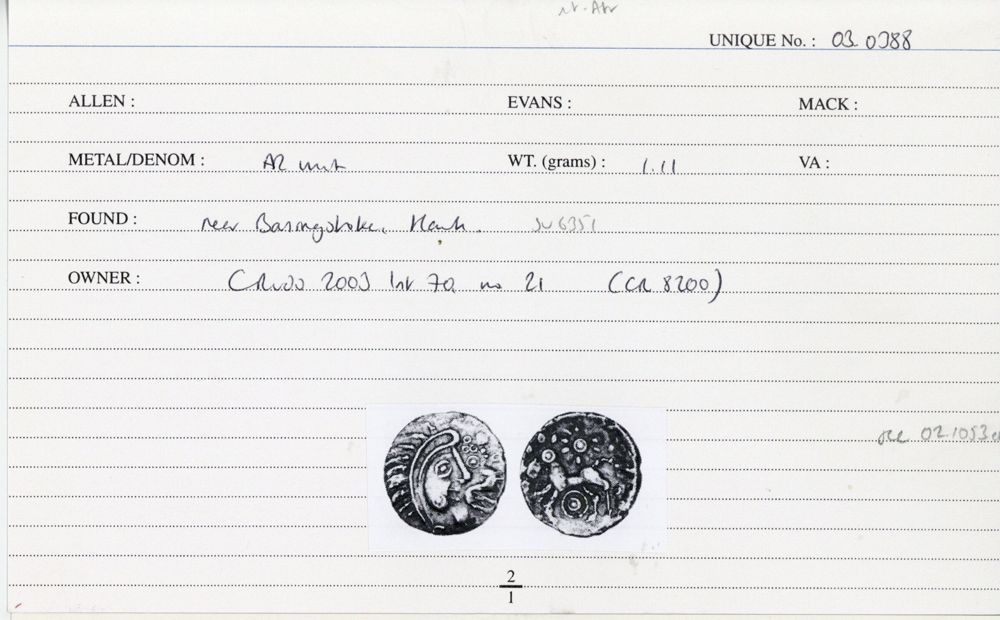 UNIQUE No. : 03.0388
ALLEN : EVANS : MACK :
METAL/DENOM : AR unit WT. (grams) : 1.11 VA :
FOUND : near Basingstoke, Hants. SU6351
OWNER : 2003 no 21 (CR 8200)
02.1053
2
1